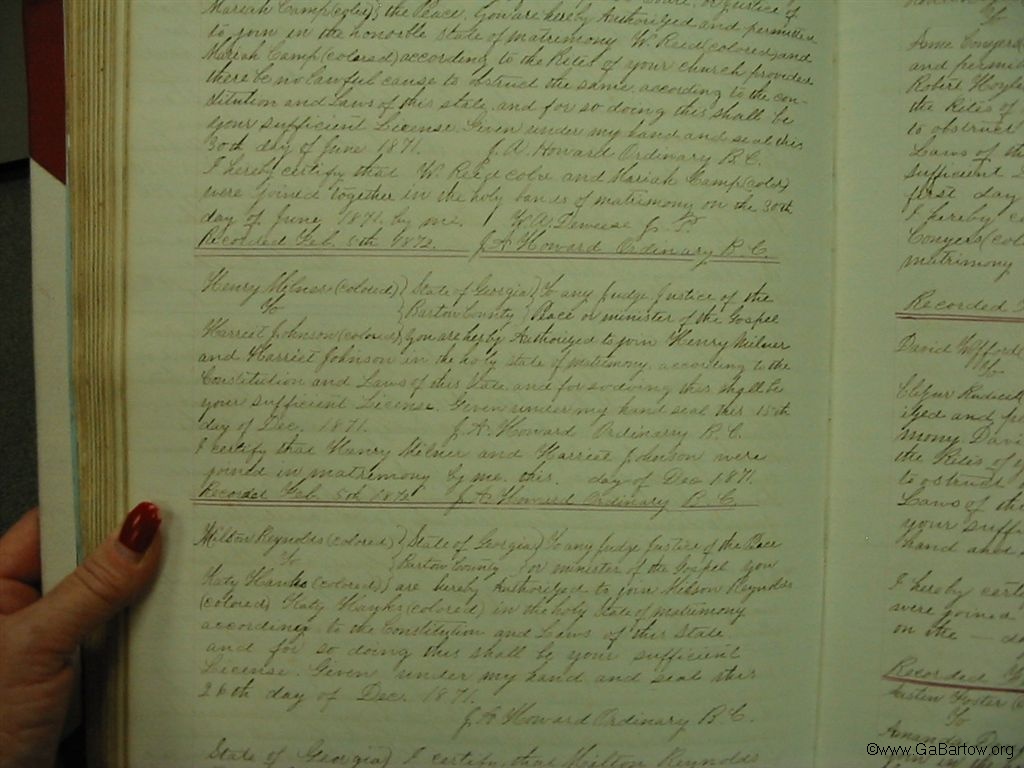 Mariah Camp (cold) } the Peace. You are hereby Authorized and permitted
to join in the honorble state of matrimony W. Reed (colored) and
Mariah Camp (colored) according to the Rites of your church provided
there be no lawful cause to obstruct the same according to the con-
stitution and Laws of this state, and for so doing this shall be
your sufficient License. Given under my hand and seal this
30th day of June 1871. J. A. Howard Ordinary B. C.
I hereby certify that W. Reed colr and Mariah Camp (color)
were joined together in the holy bands of matrimony on the 30th
day of June 1871, by me. W. A. Deweese J. P.
Recorded Feb. 5th 1872. J. A. Howard Ordinary B. C.
Henry Milner (colored) } State of Georgia } To any Judge Justice of the
To } Bartow County } Peace or minister of the Gospel
Harriet Johnson (colored) } You are herby Authorized to join Henry Milner
and Harriet Johnson in the holy state of matrimony, according to the
Constitution and Laws of this State and for so doing this shall be
your sufficient License. Given under my hand seal this 15th
day of Dec. 1871. J. A. Howard Ordinary B. C.
I certify that Henry Milner and Harriet Johnson were
joined in matrimony by me, this. day of Dec 1871.
Recorded Feb. 5th 1872 J. A. Howard Ordinary B. C.
Milton Reynolds (colored) } State of Georgia } To any Judge Justice of the Peace
To } Bartow County } or minister of the Gospel you
Katy Hanks (colored) } are hereby Authorized to join Milson Reynolds
(colored) Katy Hanks (colored) in the holy State of matrimony
according to the Constitution and Laws of this State.
and for so doing this shall by your sufficient
License. Given under my hand and seal this
26th day of Dec. 1871.
J. A. Howard Ordinary B. C.
State of Georgia } I certify that Milton Reynolds
To
Anne Conyers
and permitt
Robert
the Rites of
to obstruct
Laws of the
sufficient
first day
I hereby c
Conyers (col
matrimony
Recorded
David Wofford
To
ized and per
mony David
the Rites of y
to ostruct
Laws of th
your suffi
hand and
I hereby cert
were joined
on the — d
Recorded
Foster
To
Amanda
©www.GaBartow.org